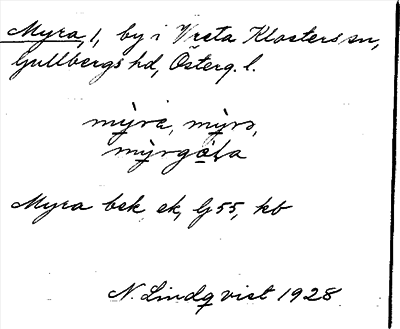 Myra, 1, by i Vreta Klosters sn,
Gullbergs hd, Österg. l.
my̌ra, my̌rs,
my̌rgo̤la
Myra bsk, ek, G 55, kb
N. Lindqvist 1928